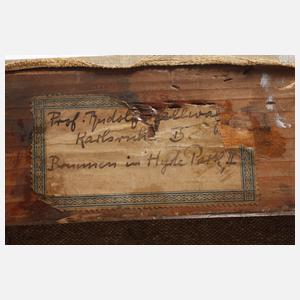 Prof. Rudolf Hellwag
Karlsruhe B
Brunnen in Hyde Park II